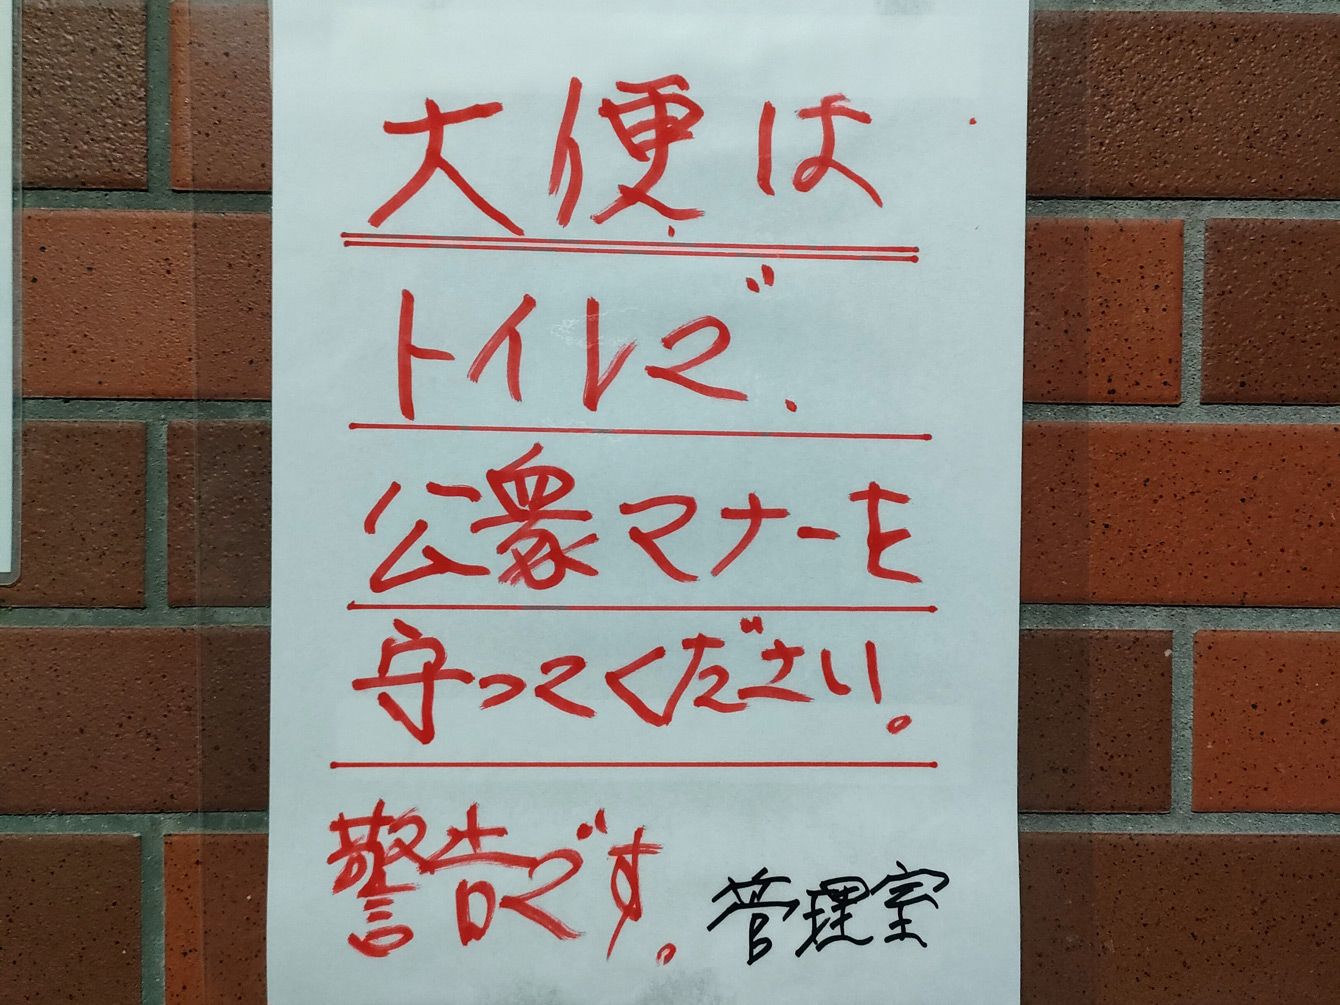 大便は
トイレで.
公衆マナーを
守ってください。
警告です。
管理室